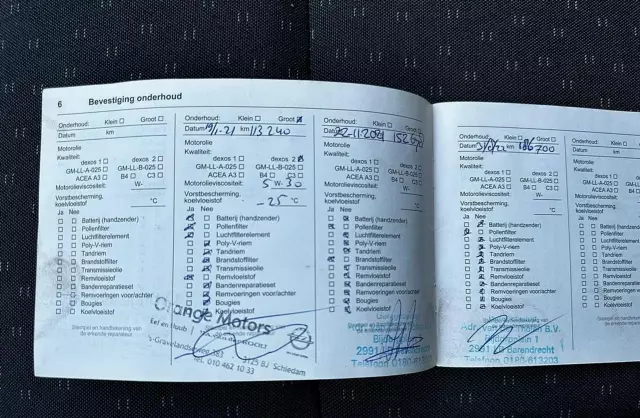 6 Bevestiging onderhoud
Onderhoud: Klein Groot
Datum km
Motorolie
Kwaliteit:
dexos 1 dexos 2
GM-LL-A-025 GM-LL-B-025
ACEA A3 B4 C3
Motorolieviscositeit: W-
Vorstbescherming, koelvloeistof °C
Ja Nee
Batterij (handzender)
Pollenfilter
Luchtfilterelement
Poly-V-riem
Tandriem
Brandstoffilter
Transmissieolie
Remvloeistof
Bandenreparatieset
Remvoeringen voor/achter
Bougies
Koelvloeistof
Stempel en handtekening van
de erkende reparateur.
Onderhoud: Klein Groot
Datum 19/1-21 km 113240
Motorolie
Kwaliteit:
dexos 1 dexos 2
GM-LL-A-025 GM-LL-B-025
ACEA A3 B4 C3
Motorolieviscositeit: 5 W- 30
Vorstbescherming,
koelvloeistof -25 °C
Ja Nee
Batterij (handzender)
Pollenfilter
Luchtfilterelement
Poly-V-riem
Tandriem
Brandstoffilter
Transmissieolie
Remvloeistof
Bandenreparatieset
Remvoeringen voor/achter
Bougies
Koelvloeistof
Orange Motors
's-Gravelandseweg
3125 BJ Schiedam
Tel. 010 462 10 33
Onderhoud: Klein Groot
Datum 22-11-2021
Motorolie
Kwaliteit:
dexos 1 dexos 2
GM-LL-A-025 GM-LL-B-025
ACEA A3 B4 C3
Motorolieviscositeit: W-
Vorstbescherming,
koelvloeistof °C
Ja Nee
Batterij (handzender)
Pollenfilter
Luchtfilterelement
Poly-V-riem
Tandriem
Brandstoffilter
Transmissieolie
Remvloeistof
Bandenreparatieset
Remvoeringen voor/achter
Bougies
Koelvloeistof
2991
Telefoon 0180-613203
Onderhoud: Klein Groot
Datum km 186700
Motorolie
Kwaliteit:
dexos 1 dexos 2
GM-LL-A-025 GM-LL-B-025
ACEA A3 B4 C3
Motorolieviscositeit: W-
Vorstbescherming,
koelvloeistof °C
Ja Nee
Batterij (handzender)
Pollenfilter
Luchtfilterelement
Poly-V-riem
Tandriem
Brandstoffilter
Transmissieolie
Remvloeistof
Bandenreparatieset
Remvoeringen voor/achter
Bougies
Koelvloeistof
B.V.
2991 Barendrecht
Telefoon 0180-613203
Onderhoud:
Datum
Motorolie
Kwaliteit:
GM-LL-A-025
ACEA A3
Motorolieviscositeit:
Vorstbescherming,
koelvloeistof
Ja Nee
Batterij (handzender)
Pollenfilter
Luchtfilterelement
Poly-V-riem
Tandriem
Brandstoffilter
Transmissieolie
Remvloeistof
Bandenreparatieset
Remvoeringen voor/achter
Bougies
Koelvloeistof
Stempel en handtekening van
de erkende reparateur.